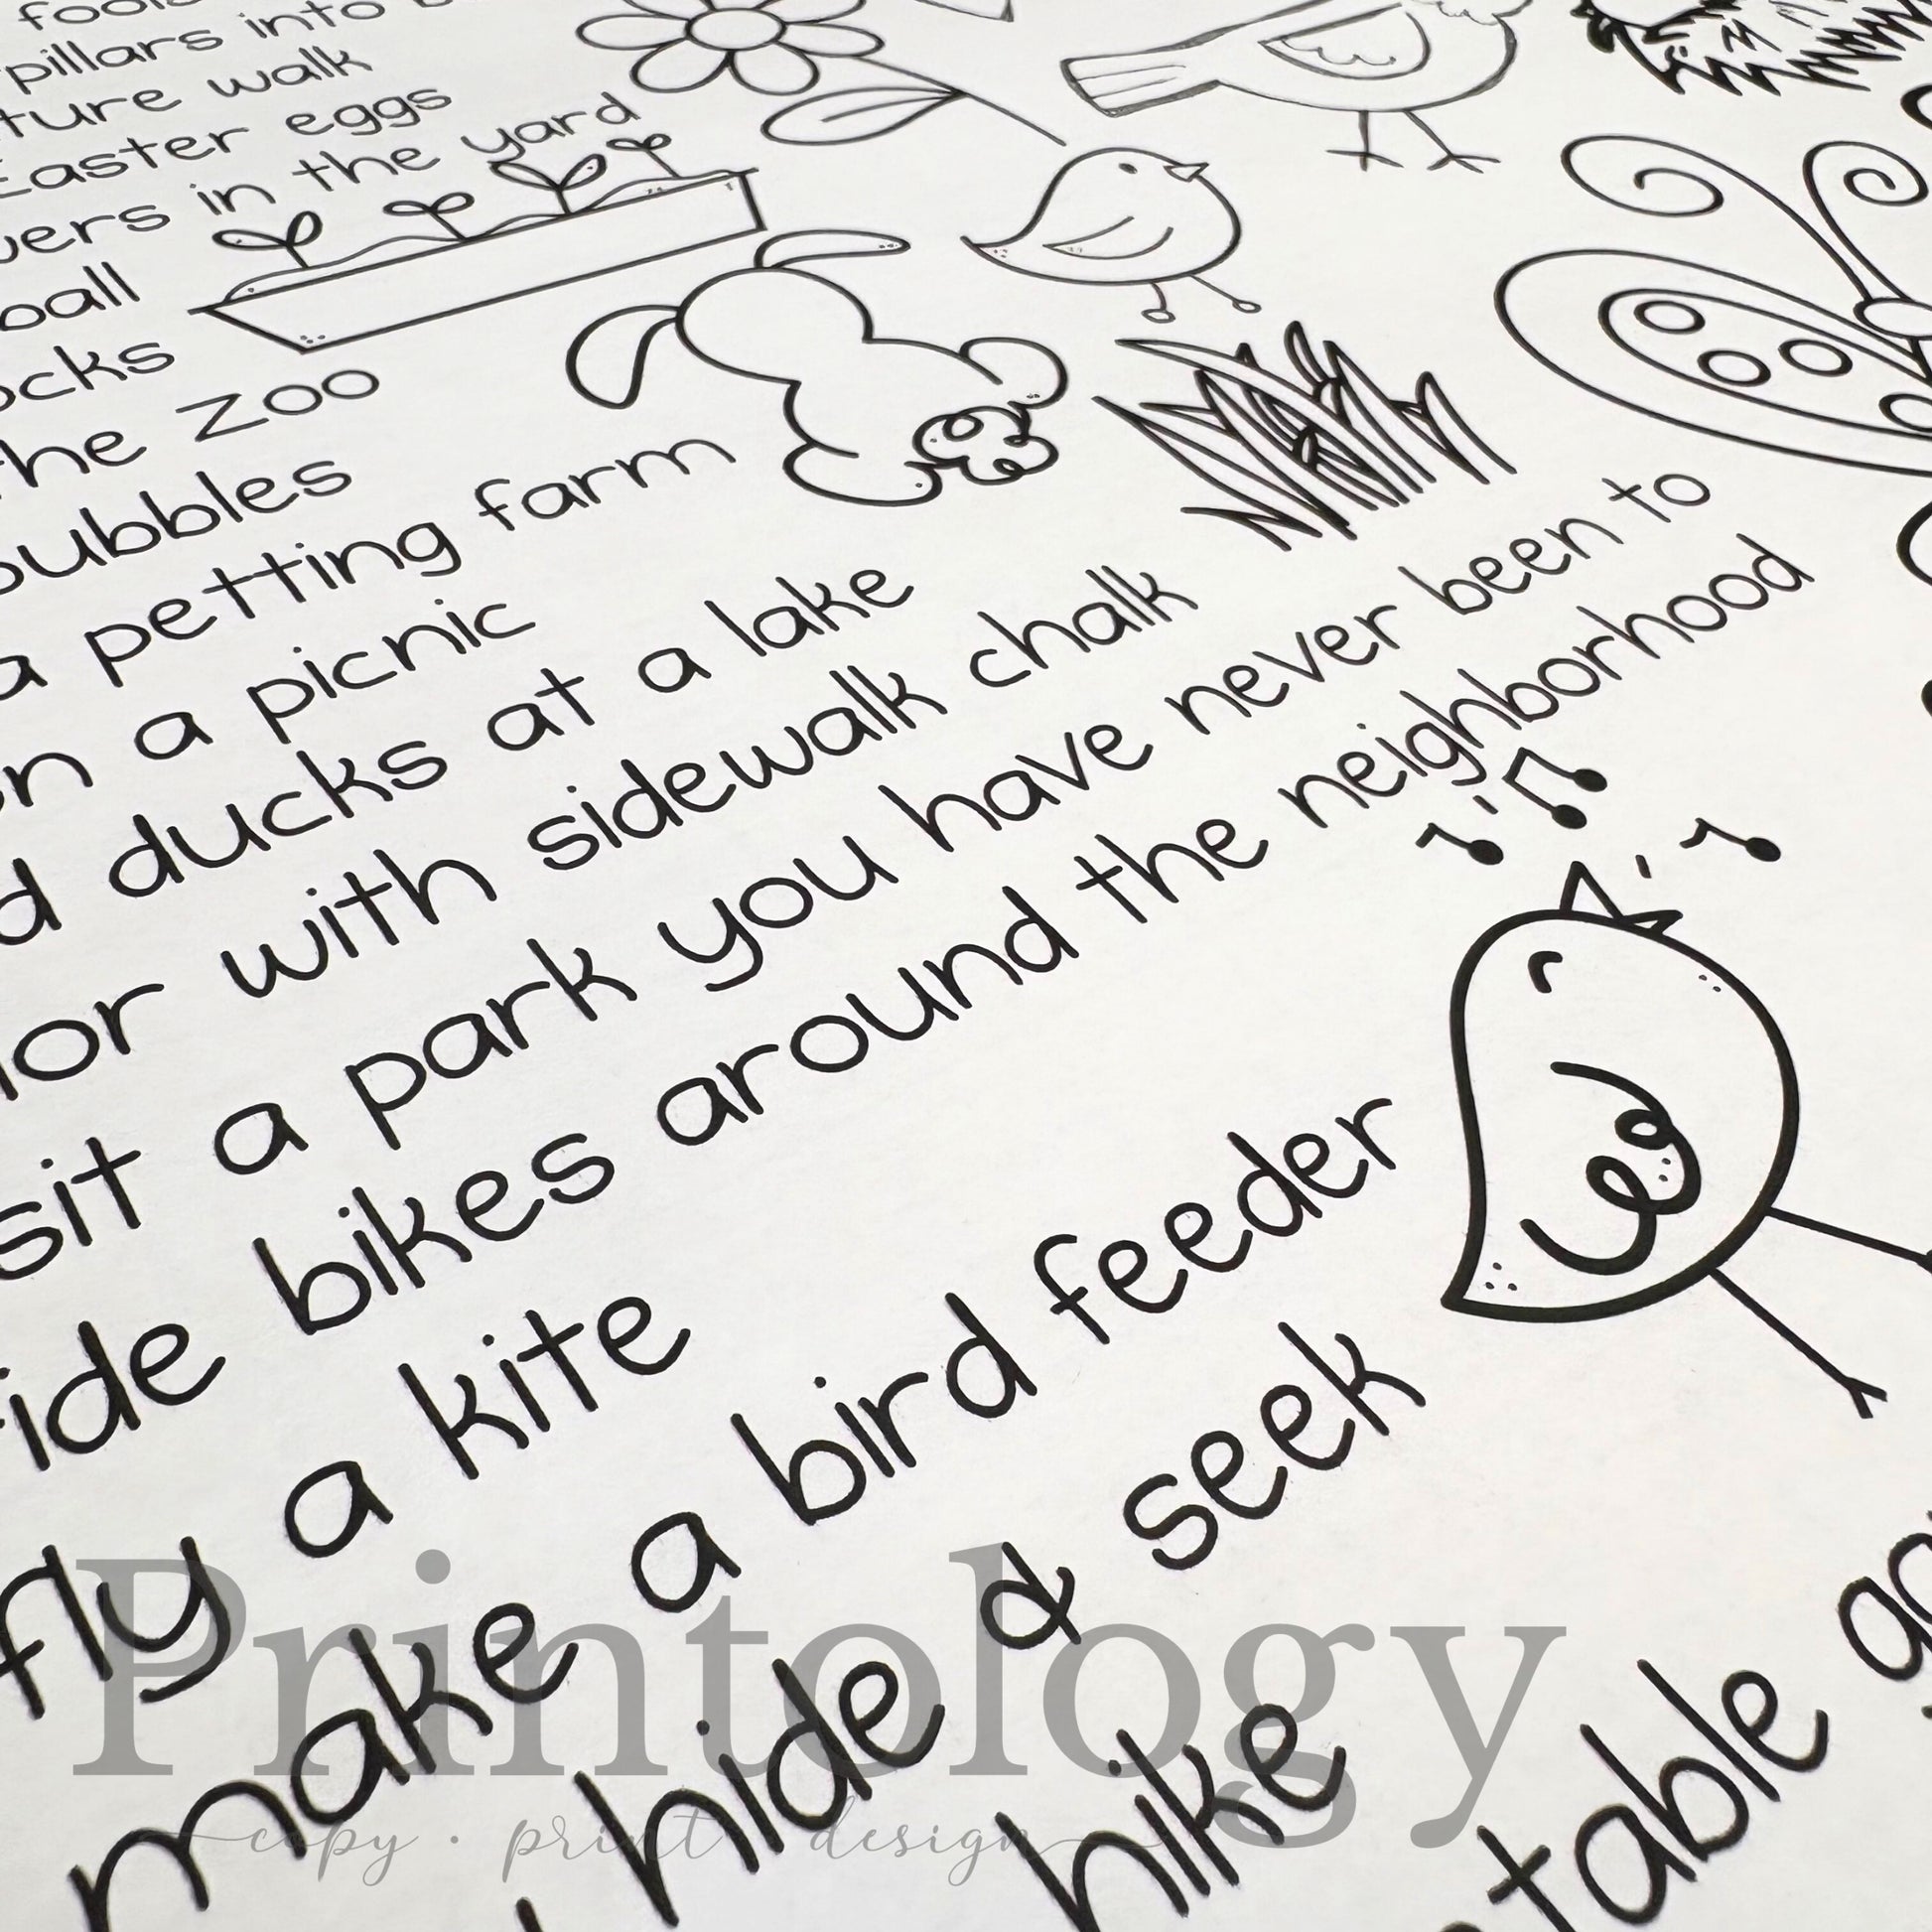 into
walk
Easter eggs
in the yard
ball
zoo
bubbles
a petting farm
a picnic
ducks at a lake
with sidewalk chalk
a park you have never been to
bikes around the neighborhood
fly a kite
make a bird feeder
hide & seek
hike
table
Printology
copy · print design